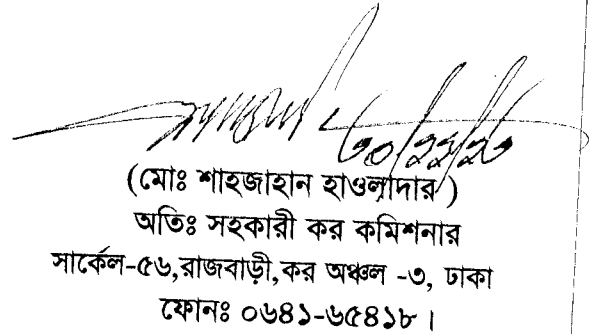 (মোঃ শাহজাহান হাওলাদার)
অতিঃ সহকারী কর কমিশনার
সার্কেল-৫৬,রাজবাড়ী,কর অঞ্চল -৩, ঢাকা
ফোনঃ ০৬৪১-৬৫৪১৮।